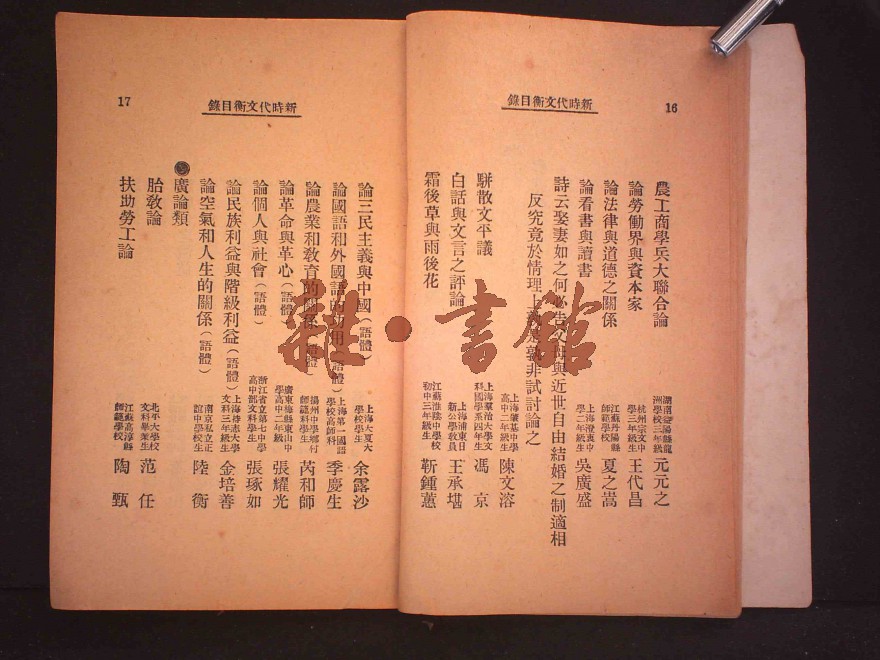 16
新時代文衡目錄
農工商學兵大聯合論 元元之
論勞働界與資本家 杭州宗文中學三年級生 王代昌
論法律與道德之關係 江蘇丹陽縣師範學校 夏之嵩
論看書與讀書 上海澄衷中學二年級生 吳廣盛
詩云娶妻如之何必告父母與近世自由結婚之制適相
反究竟於情理上孰是孰非試討論之 上海肇基中學高中二年級生 陳文溶
駢散文平議 上海羣治大學文科國學系四年生 馮京
白話與文言之評論 上海浦東日新公學教員 王承堪
霜後草與雨後花 江蘇淮陰中學初中三年級生 靳鍾蕙
新時代文衡目錄
17
論三民主義與中國(語體) 上海大夏大學校學生 余露沙
論國語和外國語的功用(語體) 上海第一國語學校高師科 季慶生
論農業和教育的關係(語體) 揚州中學鄉村師範科學生 芮和師
論革命與革心(語體) 張耀光
論個人與社會(語體) 浙江省立第七中學高中部文科學生 張琢如
論民族利益與階級利益(語體) 金培善
論空氣和人生的關係(語體) 南京私立正誼中學校生 陸衡
廣論類
胎教論 北平大學校文科畢業生 范任
扶助勞工論 江蘇高淳縣師範學校 陶甄
雜·書館